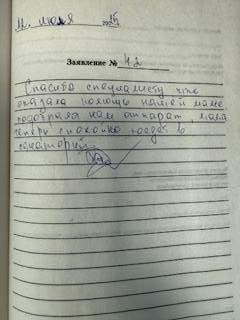 11. июля 2025
Заявление № 42
Спасибо специалисту что
оказала помощь нашей маме
подобрала нам аппарат, мама
теперь спокойно поедет в
санаторий.